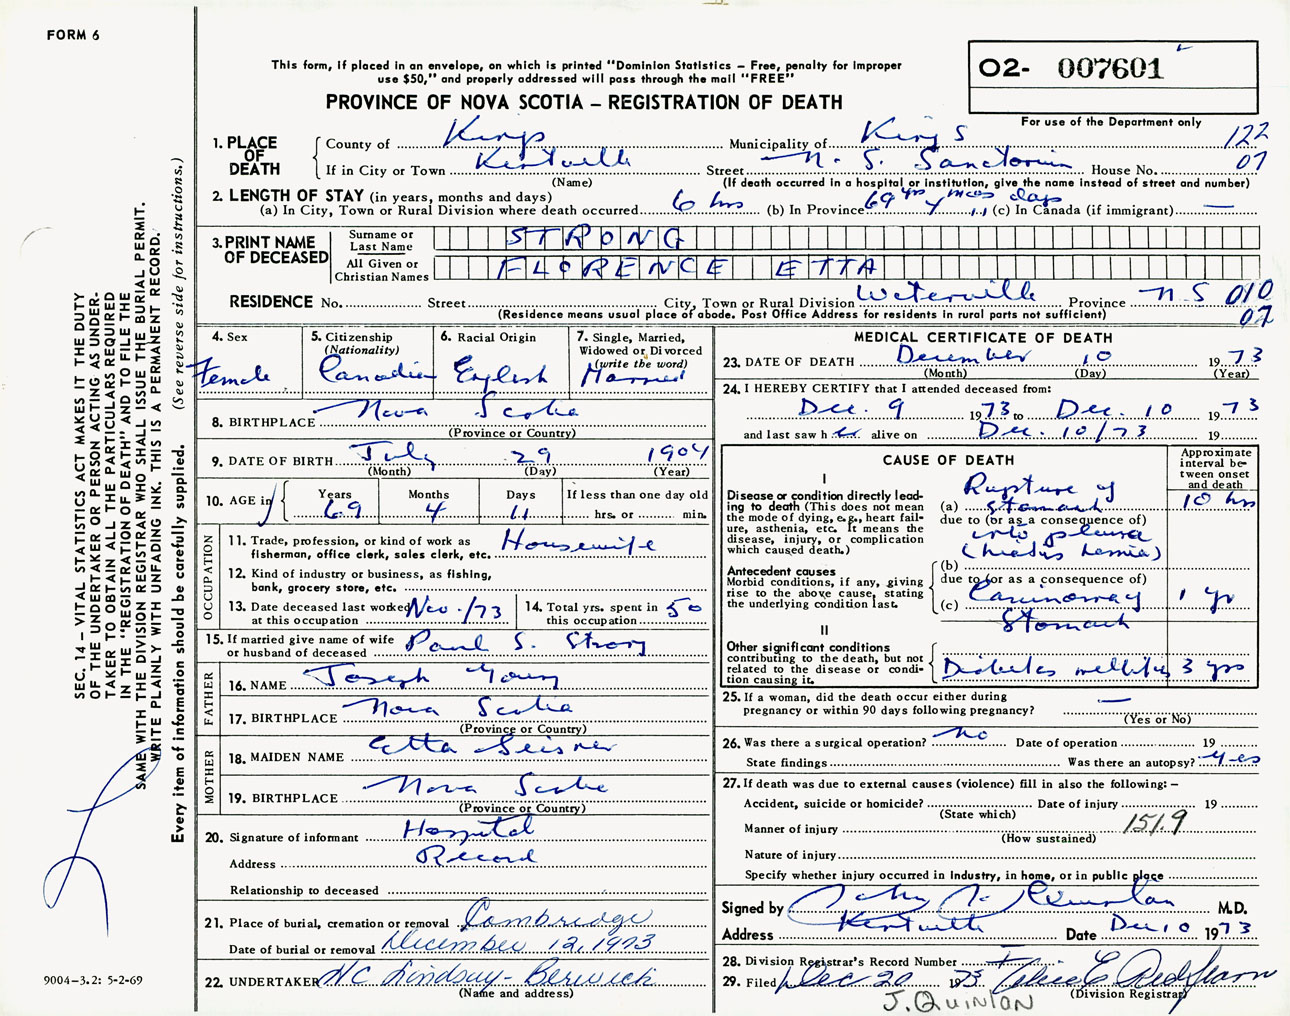 FORM 6
This form, if placed in an envelope, on which is printed "Dominion Statistics – Free, penalty for improper
use $50," and properly addressed will pass through the mail "FREE"
PROVINCE OF NOVA SCOTIA – REGISTRATION OF DEATH
O2- 007601
For use of the Department only
1. PLACE OF DEATH
County of Kings Municipality of Kings 122
If in City or Town Kentville Street N. S. Sanatorium House No. 07
(Name) (If death occurred in a hospital or institution, give the name instead of street and number)
2. LENGTH OF STAY (in years, months and days)
(a) In City, Town or Rural Division where death occurred 6 hrs (b) In Province 69 yrs 4 mces 11 days (c) In Canada (if immigrant) —
3. PRINT NAME OF DECEASED
Surname or Last Name STRONG
All Given or Christian Names FLORENCE ETTA
RESIDENCE No. Street City, Town or Rural Division Waterville Province N.S 010
(Residence means usual place of abode. Post Office Address for residents in rural parts not sufficient) 07
4. Sex
Female
5. Citizenship
(Nationality)
Canadian
6. Racial Origin
English
7. Single, Married,
Widowed or Divorced
(write the word)
Married
8. BIRTHPLACE Nova Scotia
(Province or Country)
9. DATE OF BIRTH July 29 1904
(Month) (Day) (Year)
10. AGE in
Years Months Days If less than one day old
69 4 11 hrs. or min.
OCCUPATION
11. Trade, profession, or kind of work as
fisherman, office clerk, sales clerk, etc. Housewife
12. Kind of industry or business, as fishing,
bank, grocery store, etc.
13. Date deceased last worked
at this occupation Nov./73
14. Total yrs. spent in
this occupation 50
15. If married give name of wife
or husband of deceased Paul S. Strong
FATHER
16. NAME Joseph Young
17. BIRTHPLACE Nova Scotia
(Province or Country)
MOTHER
18. MAIDEN NAME Etta Seisner
19. BIRTHPLACE Nova Scotia
(Province or Country)
20. Signature of informant Hospital
Address Record
Relationship to deceased
21. Place of burial, cremation or removal Cambridge
Date of burial or removal December 12, 1973
22. UNDERTAKER H.C. Lindsay - Berwick
(Name and address)
MEDICAL CERTIFICATE OF DEATH
23. DATE OF DEATH December 10 1973
(Month) (Day) (Year)
24. I HEREBY CERTIFY that I attended deceased from:
Dec. 9 1973 to Dec. 10 1973
and last saw h er alive on Dec. 10/73 19
CAUSE OF DEATH
Approximate interval between onset and death
I
Disease or condition directly leading to death (This does not mean the mode of dying, e.g., heart failure, asthenia, etc. It means the disease, injury, or complication which caused death.)
(a) Rupture of stomach 10 hrs
due to (or as a consequence of)
into pleura
(hiatus hernia)
Antecedent causes
Morbid conditions, if any, giving rise to the above cause, stating the underlying condition last.
(b)
due to (or as a consequence of)
(c) Carcinoma of Stomach 1 yr
II
Other significant conditions
contributing to the death, but not related to the disease or condition causing it.
Diabetes mellitus 3 yrs
25. If a woman, did the death occur either during
pregnancy or within 90 days following pregnancy? —
(Yes or No)
26. Was there a surgical operation? no Date of operation 19
State findings Was there an autopsy? yes
27. If death was due to external causes (violence) fill in also the following: –
Accident, suicide or homicide? Date of injury 19
(State which)
Manner of injury 151.9
(How sustained)
Nature of injury
Specify whether injury occurred in Industry, in home, or in public place
Signed by John J. Quinlan M.D.
Address Kentville Date Dec 10 1973
28. Division Registrar's Record Number
29. Filed Dec 20 1973
(Division Registrar)
J. QUINLAN
SEC. 14 – VITAL STATISTICS ACT MAKES IT THE DUTY
OF THE UNDERTAKER OR PERSON ACTING AS UNDER-
TAKER TO OBTAIN ALL THE PARTICULARS REQUIRED
IN THE "REGISTRATION OF DEATH" AND TO FILE THE
SAME WITH THE DIVISION REGISTRAR WHO SHALL ISSUE THE BURIAL PERMIT.
WRITE PLAINLY WITH UNFADING INK. THIS IS A PERMANENT RECORD.
Every item of information should be carefully supplied. (See reverse side for instructions.)
9004-3.2: 5-2-69